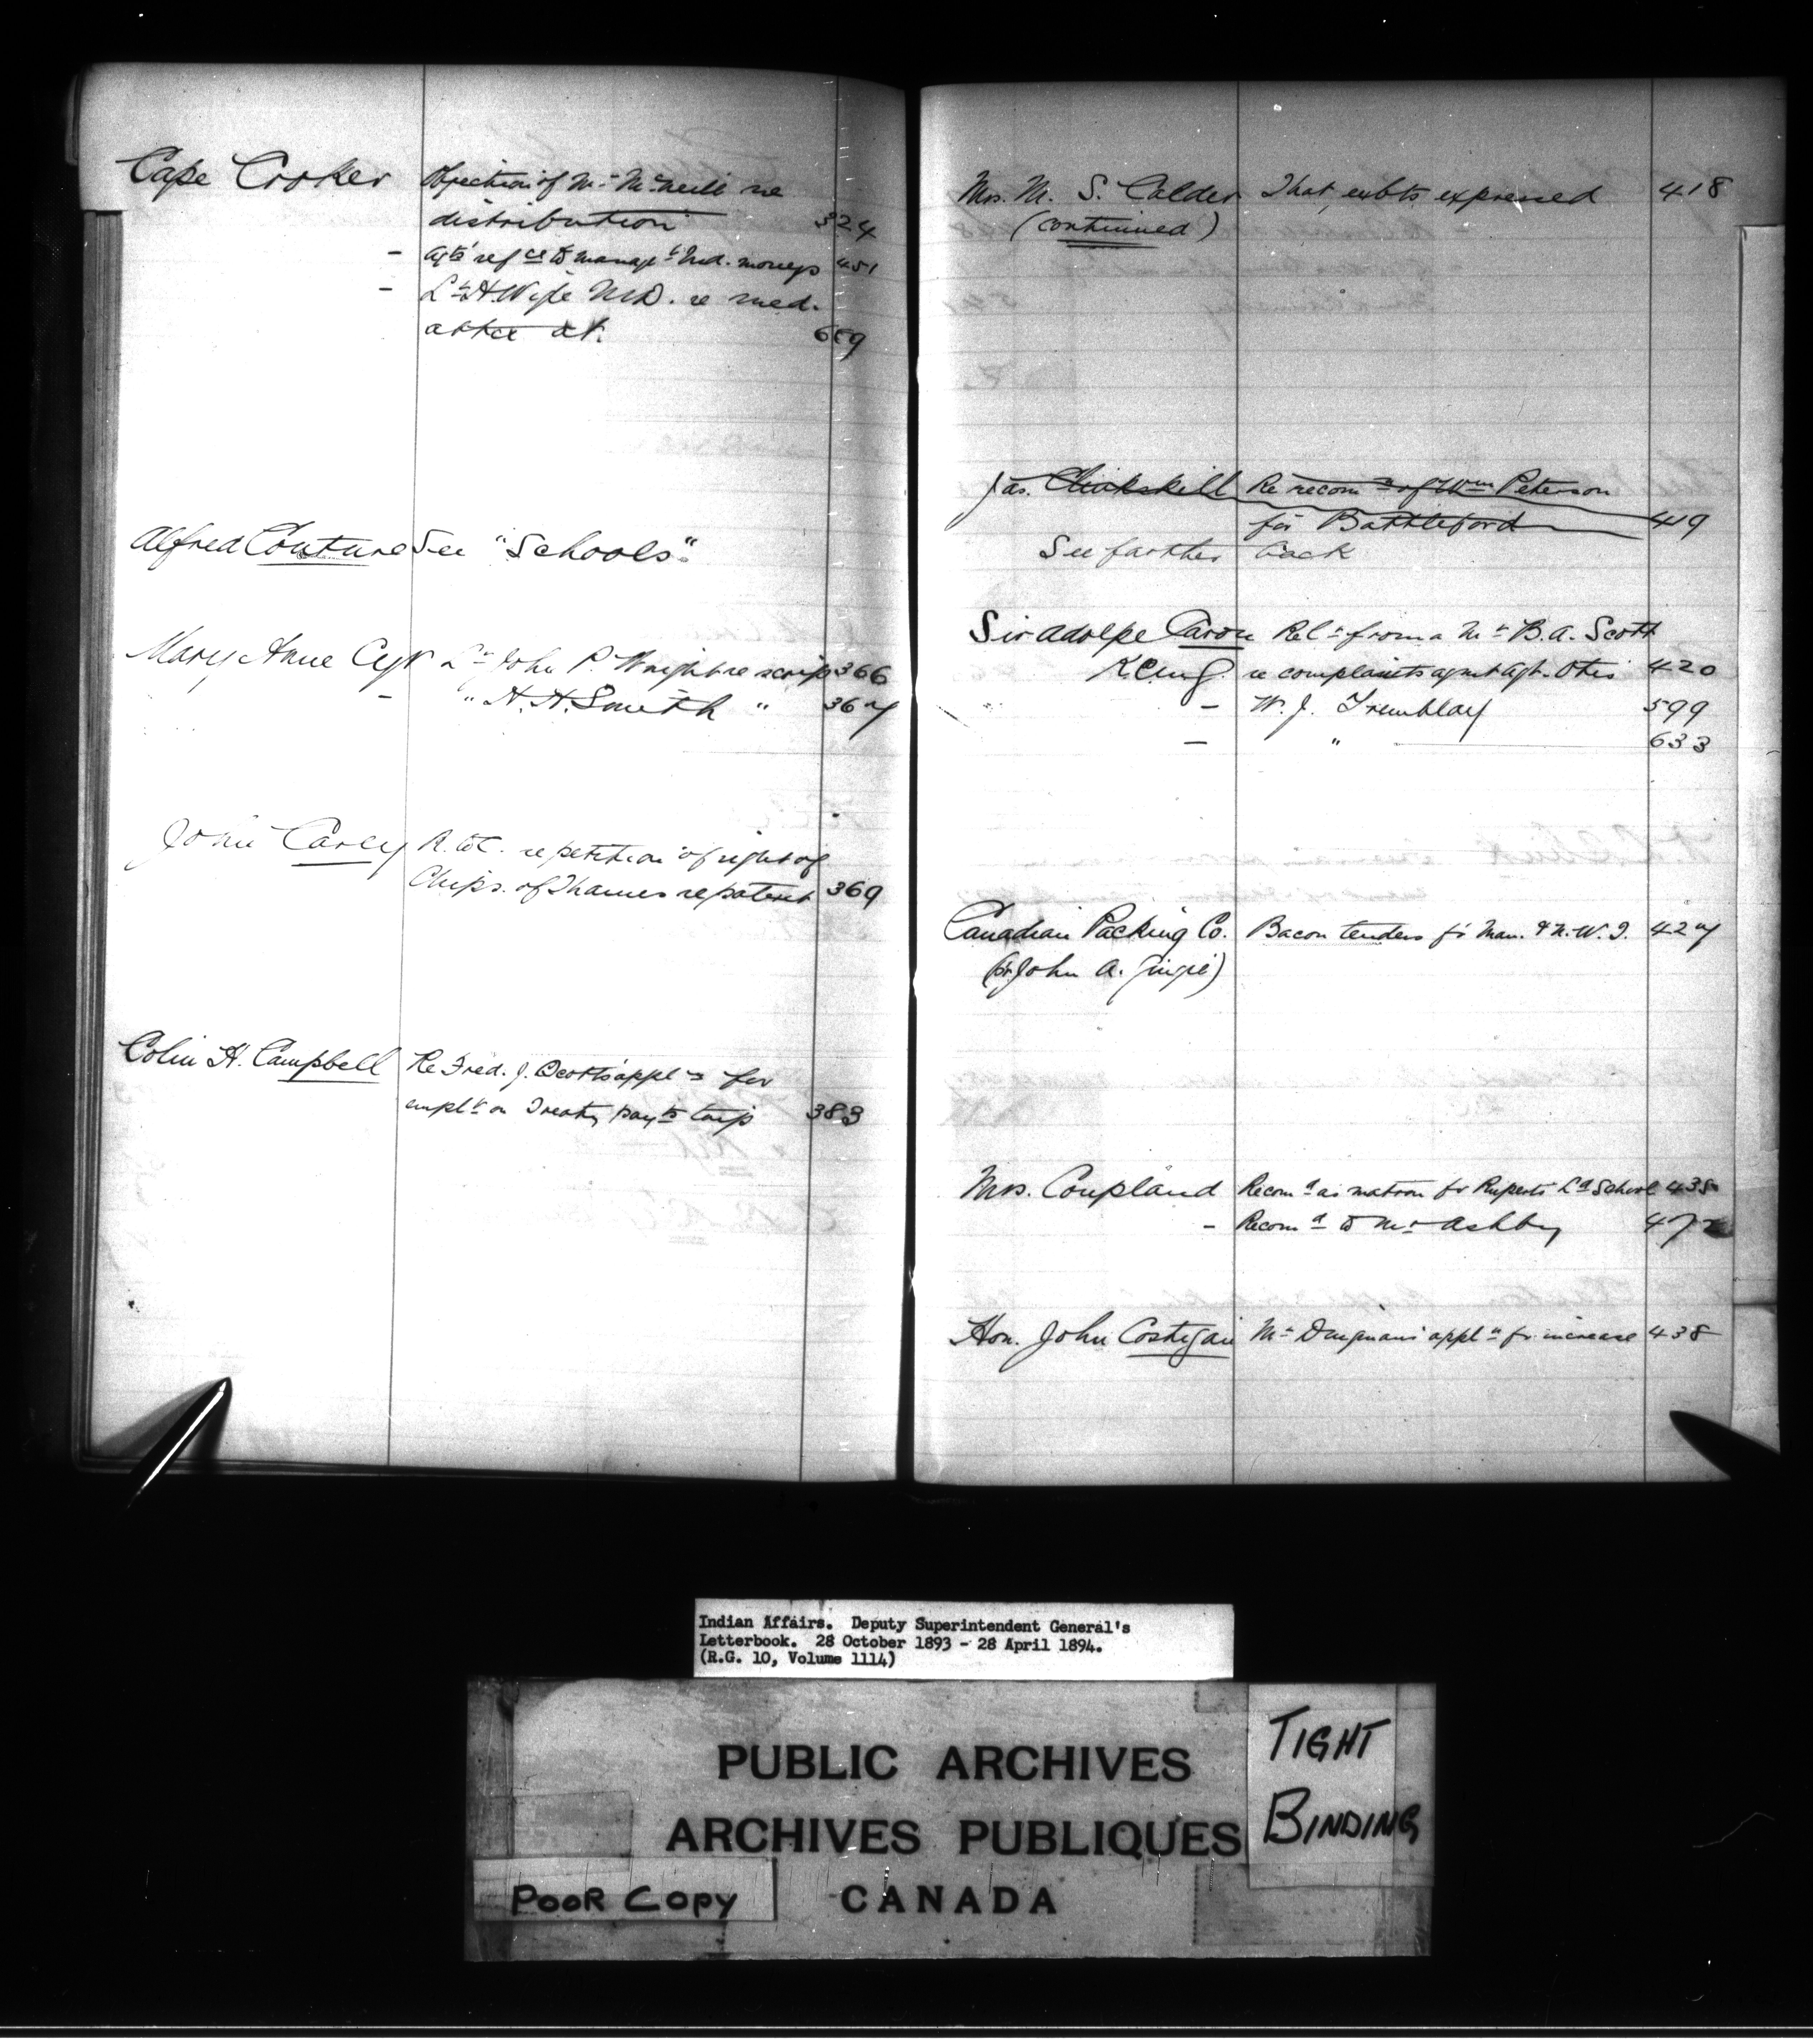 Cape Croker Objection of Mr. McNeill re
distribution 324
- Agts' refce to managt Ind. moneys 451
- Lr H. Wigle M.D. re med.
attce at. 659
Alfred Couture See "Schools"
Mary Anne Cyr Lr John P. Wright re scrip 366
- " H. H. Smith " 367
John Carey A. to C. re petition of right of
Chips. of Thames re patent 369
Colin H. Campbell Re Fred. J. Scott's appln for
emplt on Treaty payts trip 383
Mrs. M. S. Calder That, exbts expressed 418
(continued)
Jas. Clinkskill Re recomn of Wm Peterson
for Battleford 419
See farther back
Sir Adolpe Caron Rel. from a Mr B. A. Scott
K.C.M.G. re complaints agnst Agt. Otis 420
" - W. J. Tremblay 599
- " 633
Canadian Packing Co. Bacon tenders fr Man. & N.W.T. 427
(pr John A. )
Mrs. Coupland Recomd as matron fr Ruperts Ld School 435
- Recomd to Mr Ashby 472
Hon. John Costigan Mr Duignan's appln fr increase 438
Indian Affairs. Deputy Superintendent General's
Letterbook. 28 October 1893 - 28 April 1894.
(R.G. 10, Volume 1114)
PUBLIC ARCHIVES
ARCHIVES PUBLIQUES
CANADA
TIGHT
BINDING
POOR COPY